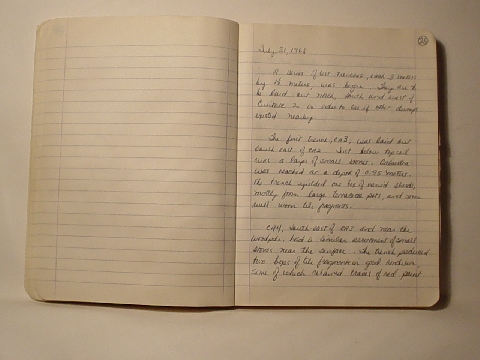 20
July 31, 1968
A series of test trenches, each 3 meters
by 1½ meters, was begun. They are to
be laid out north, south and east of
in order to see if other dumps
existed nearby.
The first trench, CA3, was laid out
east of CA2. Just below topsoil
was a layer of small stones.
was reached at a depth of 0.55 meters.
The trench yielded one tin of mixed sherds,
mostly from large terracotta pots, and some
well worn tile fragments.
CA4, south-east of CA3 and near the
woodpile, had a similar assortment of small
stones near the surface. The trench produced
two bags of tile fragments in good
some of which retained traces of red paint